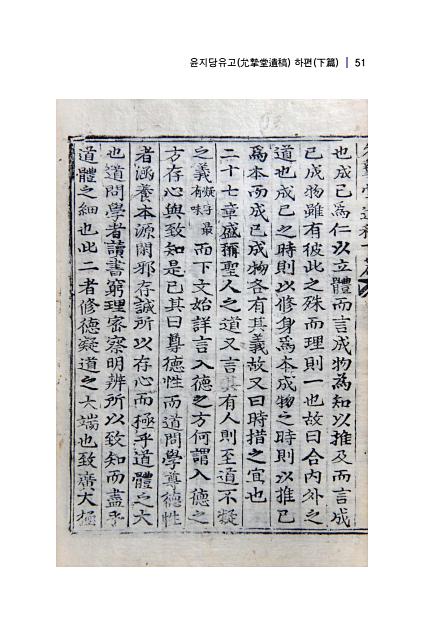 윤지당유고(允摯堂遺稿) 하편(下篇) | 51
也成己爲仁以立體而言成物爲知以推及而言成
己成物雖有彼此之殊而理則一也故曰合內外之
道也成己之時則以修身爲本成物之時則以推己
爲本而成己成物各有其義故又曰時措之宜也
二十七章盛稱聖人之道又言其有人則至道不凝
之義凝字最有味而下文始詳言入德之方何謂入德之
方存心與致知是已其曰尊德性而道問學尊德性
者涵養本源閑邪存誠所以存心而極乎道體之大
也道問學者讀書窮理密察明辨所以致知而盡乎
道體之細也此二者修德凝道之大端也致廣大極